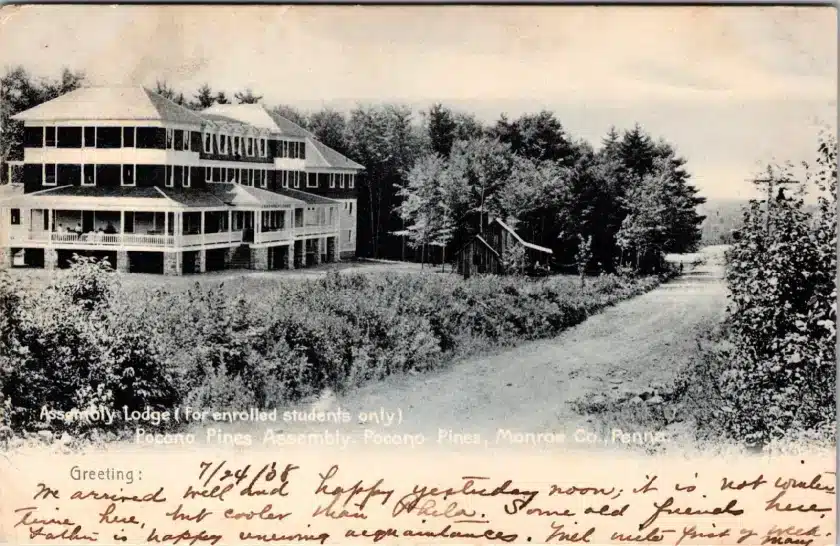 Assembly Lodge (for enrolled students only)
Pocono Pines Assembly. Pocono Pines, Monroe Co., Penna.
Greeting: 7/24/'08
We arrived well and happy yesterday noon; it is not winter
time here, but cooler than Phila. Some old friends here.
Father is happy renewing acquaintances. Will write first of week.
Mary